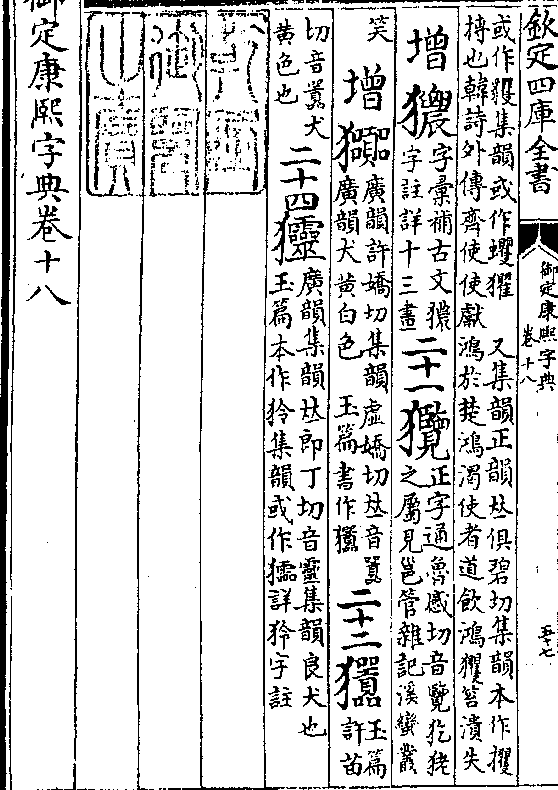 欽定四庫全書
御定康熙字典
卷十八
五十七
或作玃集韻或作蠼玃 又集韻正韻𠀤俱碧切集韻本作攫
搏也韓詩外傳齊使使獻鴻於楚鴻渴使者道飲鴻玃笞潰失
增
字彙補古文
字註詳十三畫
二十一
正字通魯感切音覽犵狫
之屬見邕管雜記溪蠻叢
笑
增
廣韻許嬌切集韻虛嬌切𠀤音囂
廣韻犬黃白色 玉篇書作
二十二
玉篇
許苗
切音囂犬
黃色也
二十四
廣韻集韻𠀤郎丁切音靈集韻良犬也
玉篇本作狑集韻或作 詳狑字註
御定康熙字典卷十八